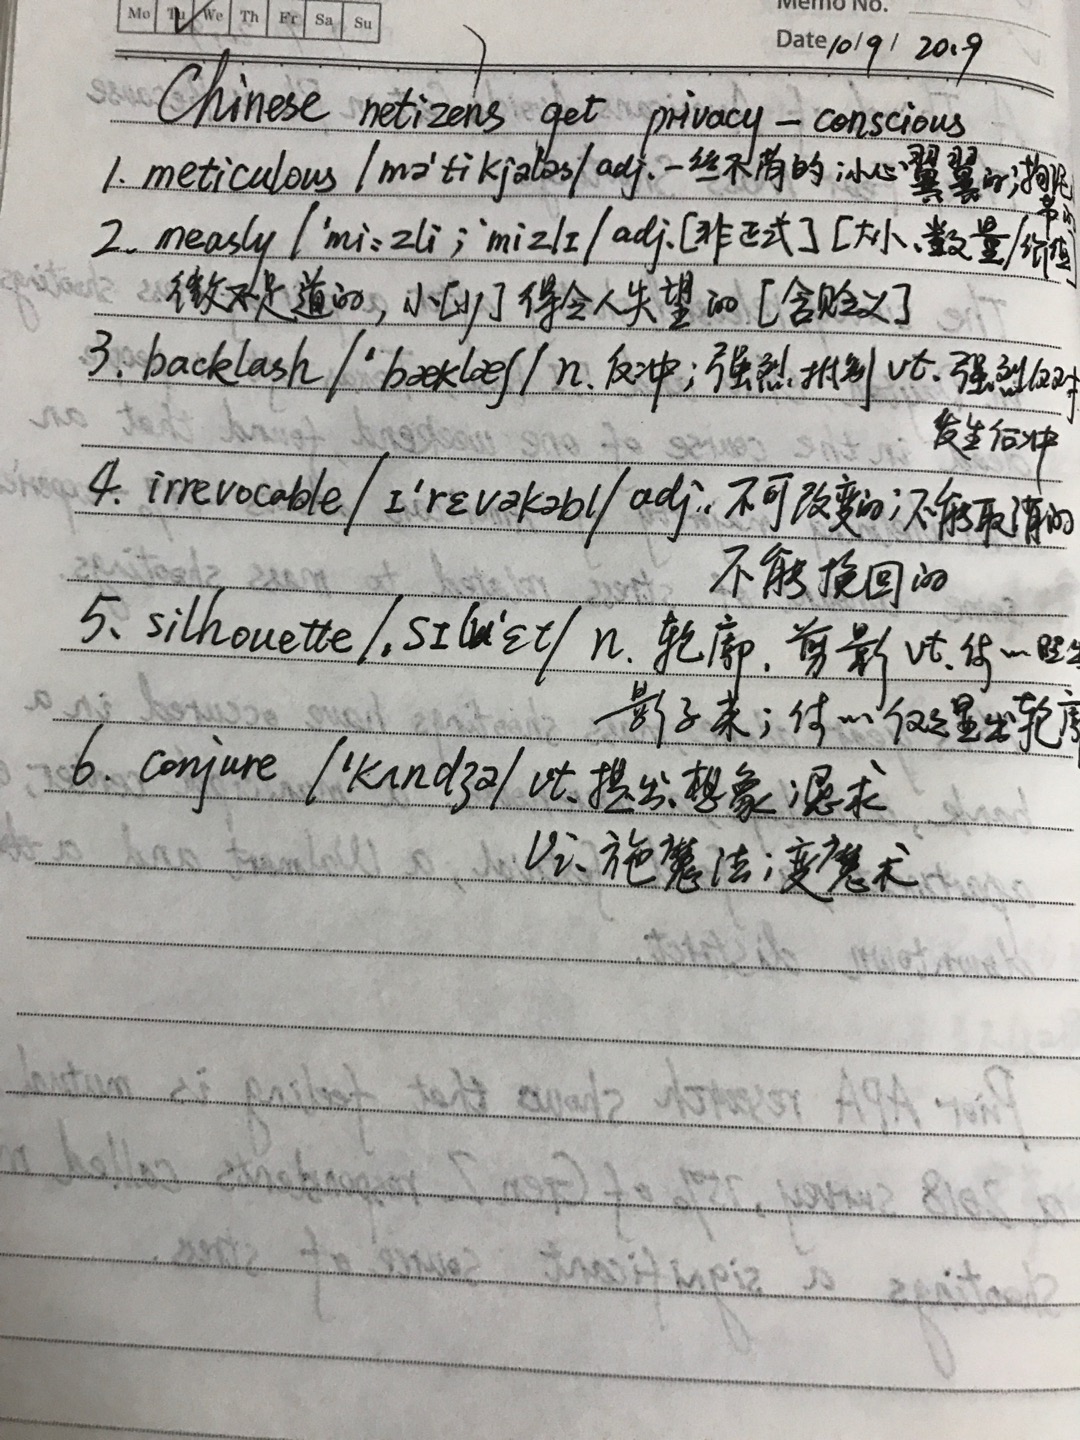 Mo Tu We Th Fr Sa Su
Memo No.
Date 10/9/ 2019
Chinese netizens get privacy-conscious
1. meticulous /mə'tikjələs/ adj. 一丝不苟的;小心翼翼的;拘泥
2. measly /'mi:zli; 'mizlɪ/ adj. [非正式] [大小、数量/价值]
微不足道的, 小[少]得令人失望的 [含贬义]
3. backlash /'bæklæʃ/ n. 反冲;强烈批判 vt. 强烈反对
发生后冲
4. irrevocable /ɪ'rɛvəkəbl/ adj. 不可改变的;不能取消的
不能挽回的
5. silhouette /,sɪlu'ɛt/ n. 轮廓,剪影 vt. 使…照出
影子来;使…仅显出轮廓
6. conjure /'kʌndʒə/ vt. 提出、想象;恳求
vi. 施魔法;变魔术